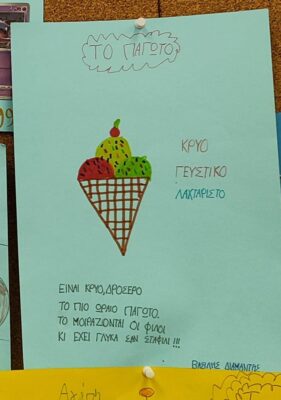 ΤΟ ΠΑΓΩΤΟ
ΚΡΥΟ
ΓΕΥΣΤΙΚΟ
ΛΑΧΤΑΡΙΣΤΟ
ΕΙΝΑΙ ΚΡΥΟ, ΔΡΟΣΕΡΟ
ΤΟ ΠΙΟ ΩΡΑΙΟ ΠΑΓΩΤΟ.
ΤΟ ΜΟΙΡΑΖΟΝΤΑΙ ΟΙ ΦΙΛΟΙ
ΚΙ ΕΧΕΙ ΓΛΥΚΑ ΣΑΝ ΣΤΑΦΙΛΙ !!!
ΔΙΑΜΑΝΤΗΣ